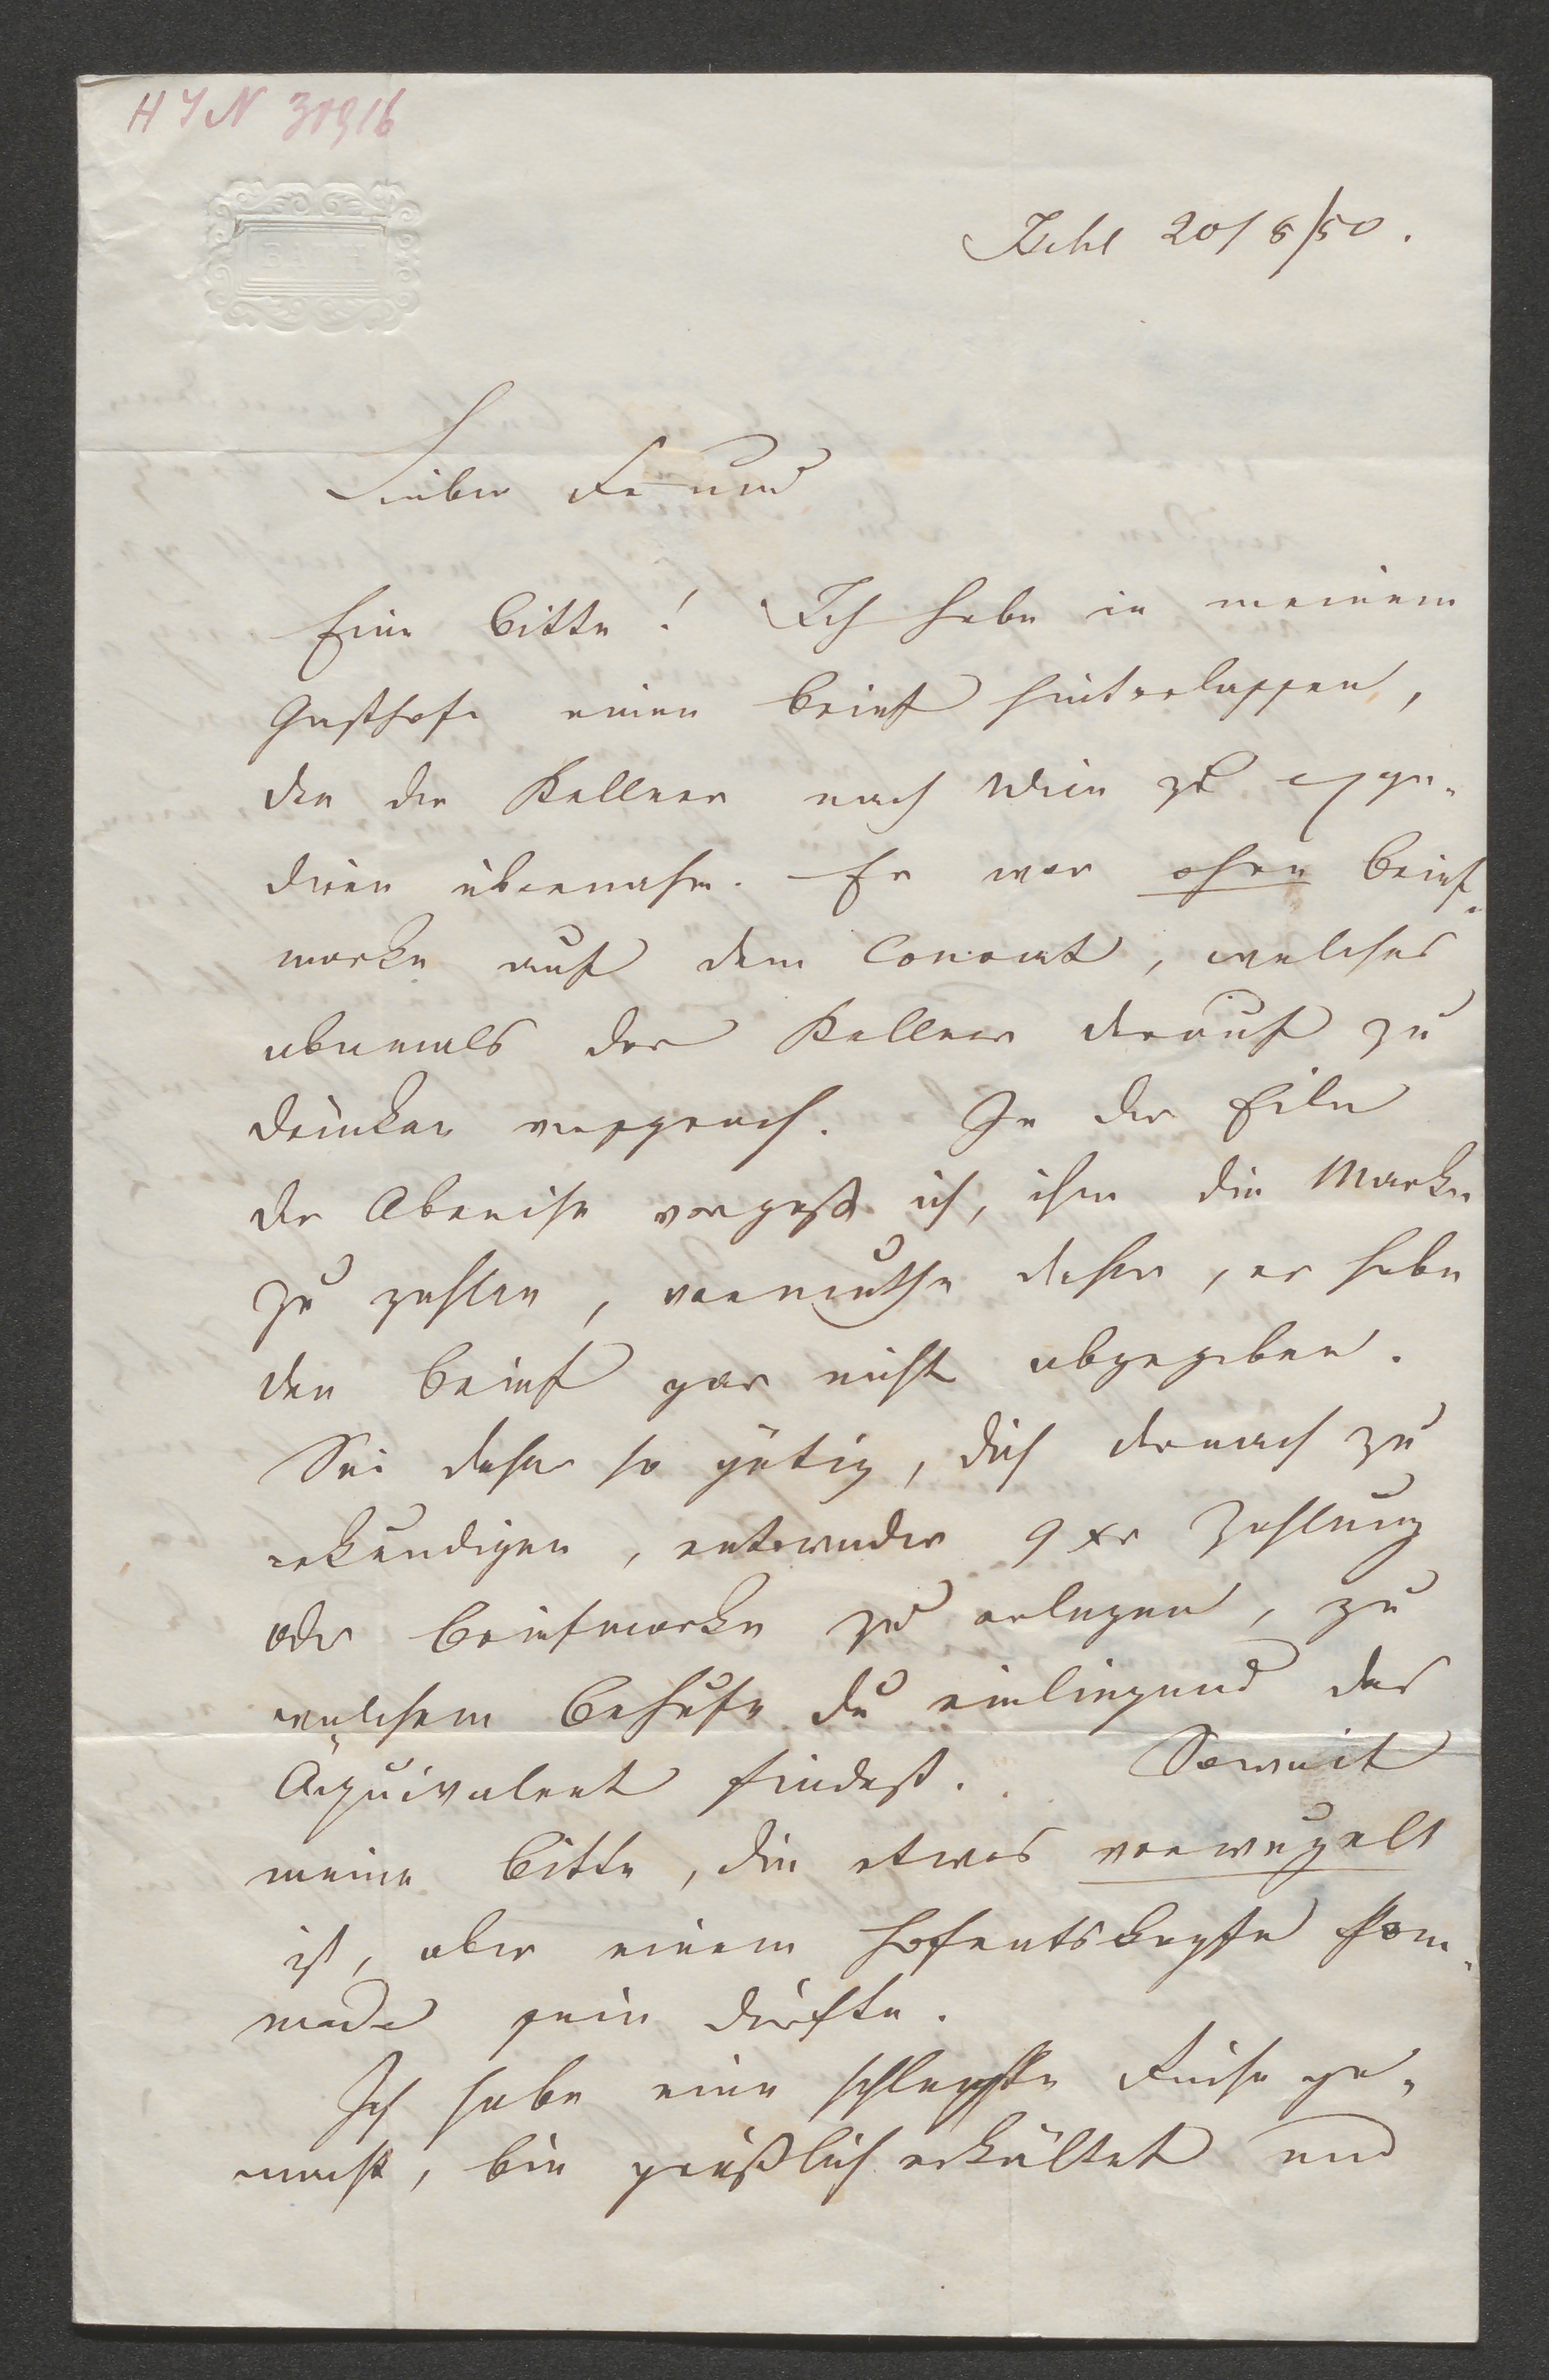 HIN 31916
BATH
Ischl 20/8/50.
Lieber Freund
Eine Bitte! Ich habe in meinem
Gasthofe einen Brief hinterlassen,
den der Kellner nach Wien zu expe-
diren übernahm. Er war ohne Brief-
marke auf dem Couvert, welches
abermals der Kellner darauf zu
drücken versprach. In der Eile
der Abreise vergaß ich, ihm die Marke
zu zahlen, vermuthe daher, er habe
den Brief gar nicht abgegeben.
Sei daher so gütig, dich darnach zu
erkundigen, entweder 9 xr Zahlung
oder Briefmarke zu erlegen, zu
welchem Behufe du einliegend das
Äquivalent findest. Soweit
meine Bitte, die etwas verwugelt
ist, aber einem Hofrathskopfe Pom-
made sein dürfte.
Ich habe eine schlechte Reise ge-
macht, bin gräßlich erkältet und